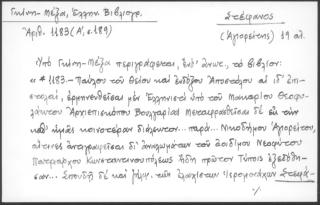 Γκίνη-Μέξα, Ἑλλην. Βιβλιογρ.
Στέφανος
Ἀριθ. 1183 (Α', σ. 189)
(Ἁγιορείτης) 19 αἰ.
Ὑπὸ Γκίνη-Μέξα περιγράφεται, ἐνθ' ἄνωτ., τὸ βιβλίον:
«# 1183.- Παύλου τοῦ θείου καὶ ἐνδόξου Ἀποστόλου αἱ ΙΔ' ἐπι-
στολαί, ἑρμηνευθεῖσαι μὲν Ἑλληνιστὶ ὑπὸ τοῦ Μακαρίου Θεοφυ-
λάκτου Ἀρχιεπισκόπου Βουλγαρίας Μεταφρασθεῖσαι δὲ εἰς τὴν
καθ' ἡμᾶς κοινοτέραν διάλεκτον... παρὰ... Νικοδήμου Ἁγιορείτου,
αἵτινες δι' ἀναλωμάτων τοῦ ἀοιδίμου Νεοφύτου
Πατριάρχου Κωνσταντινουπόλεως ἤδη πρῶτον Τύποις ἐξεδόθη-
σαν... Σπουδῇ δὲ καὶ τῶν ἐλαχίστων Ἱερομονάχων Στεφά-
./.